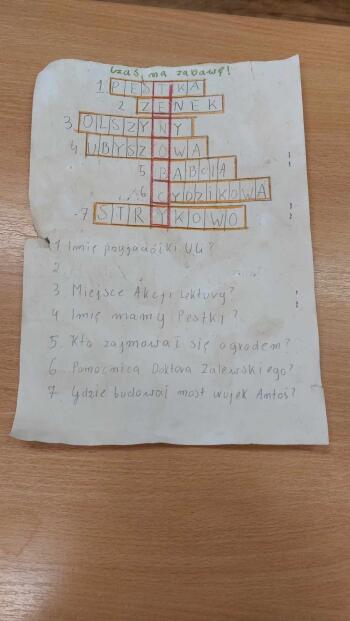 Czas na zabawę!
1 PESTKA
2 ZENEK
3 OLSZYNY
4 UBYSZOWA
5 BABCIA
6 CYDZIKOWA
7 STRYKOWO
1 Imię przyjaciółki Uli?
2
3 Miejsce Akcji lektury?
4 Imię mamy Pestki?
5 Kto zajmował się ogrodem?
6 Pomocnica Doktora Zalewskiego?
7 Gdzie budował most wujek Antoś?